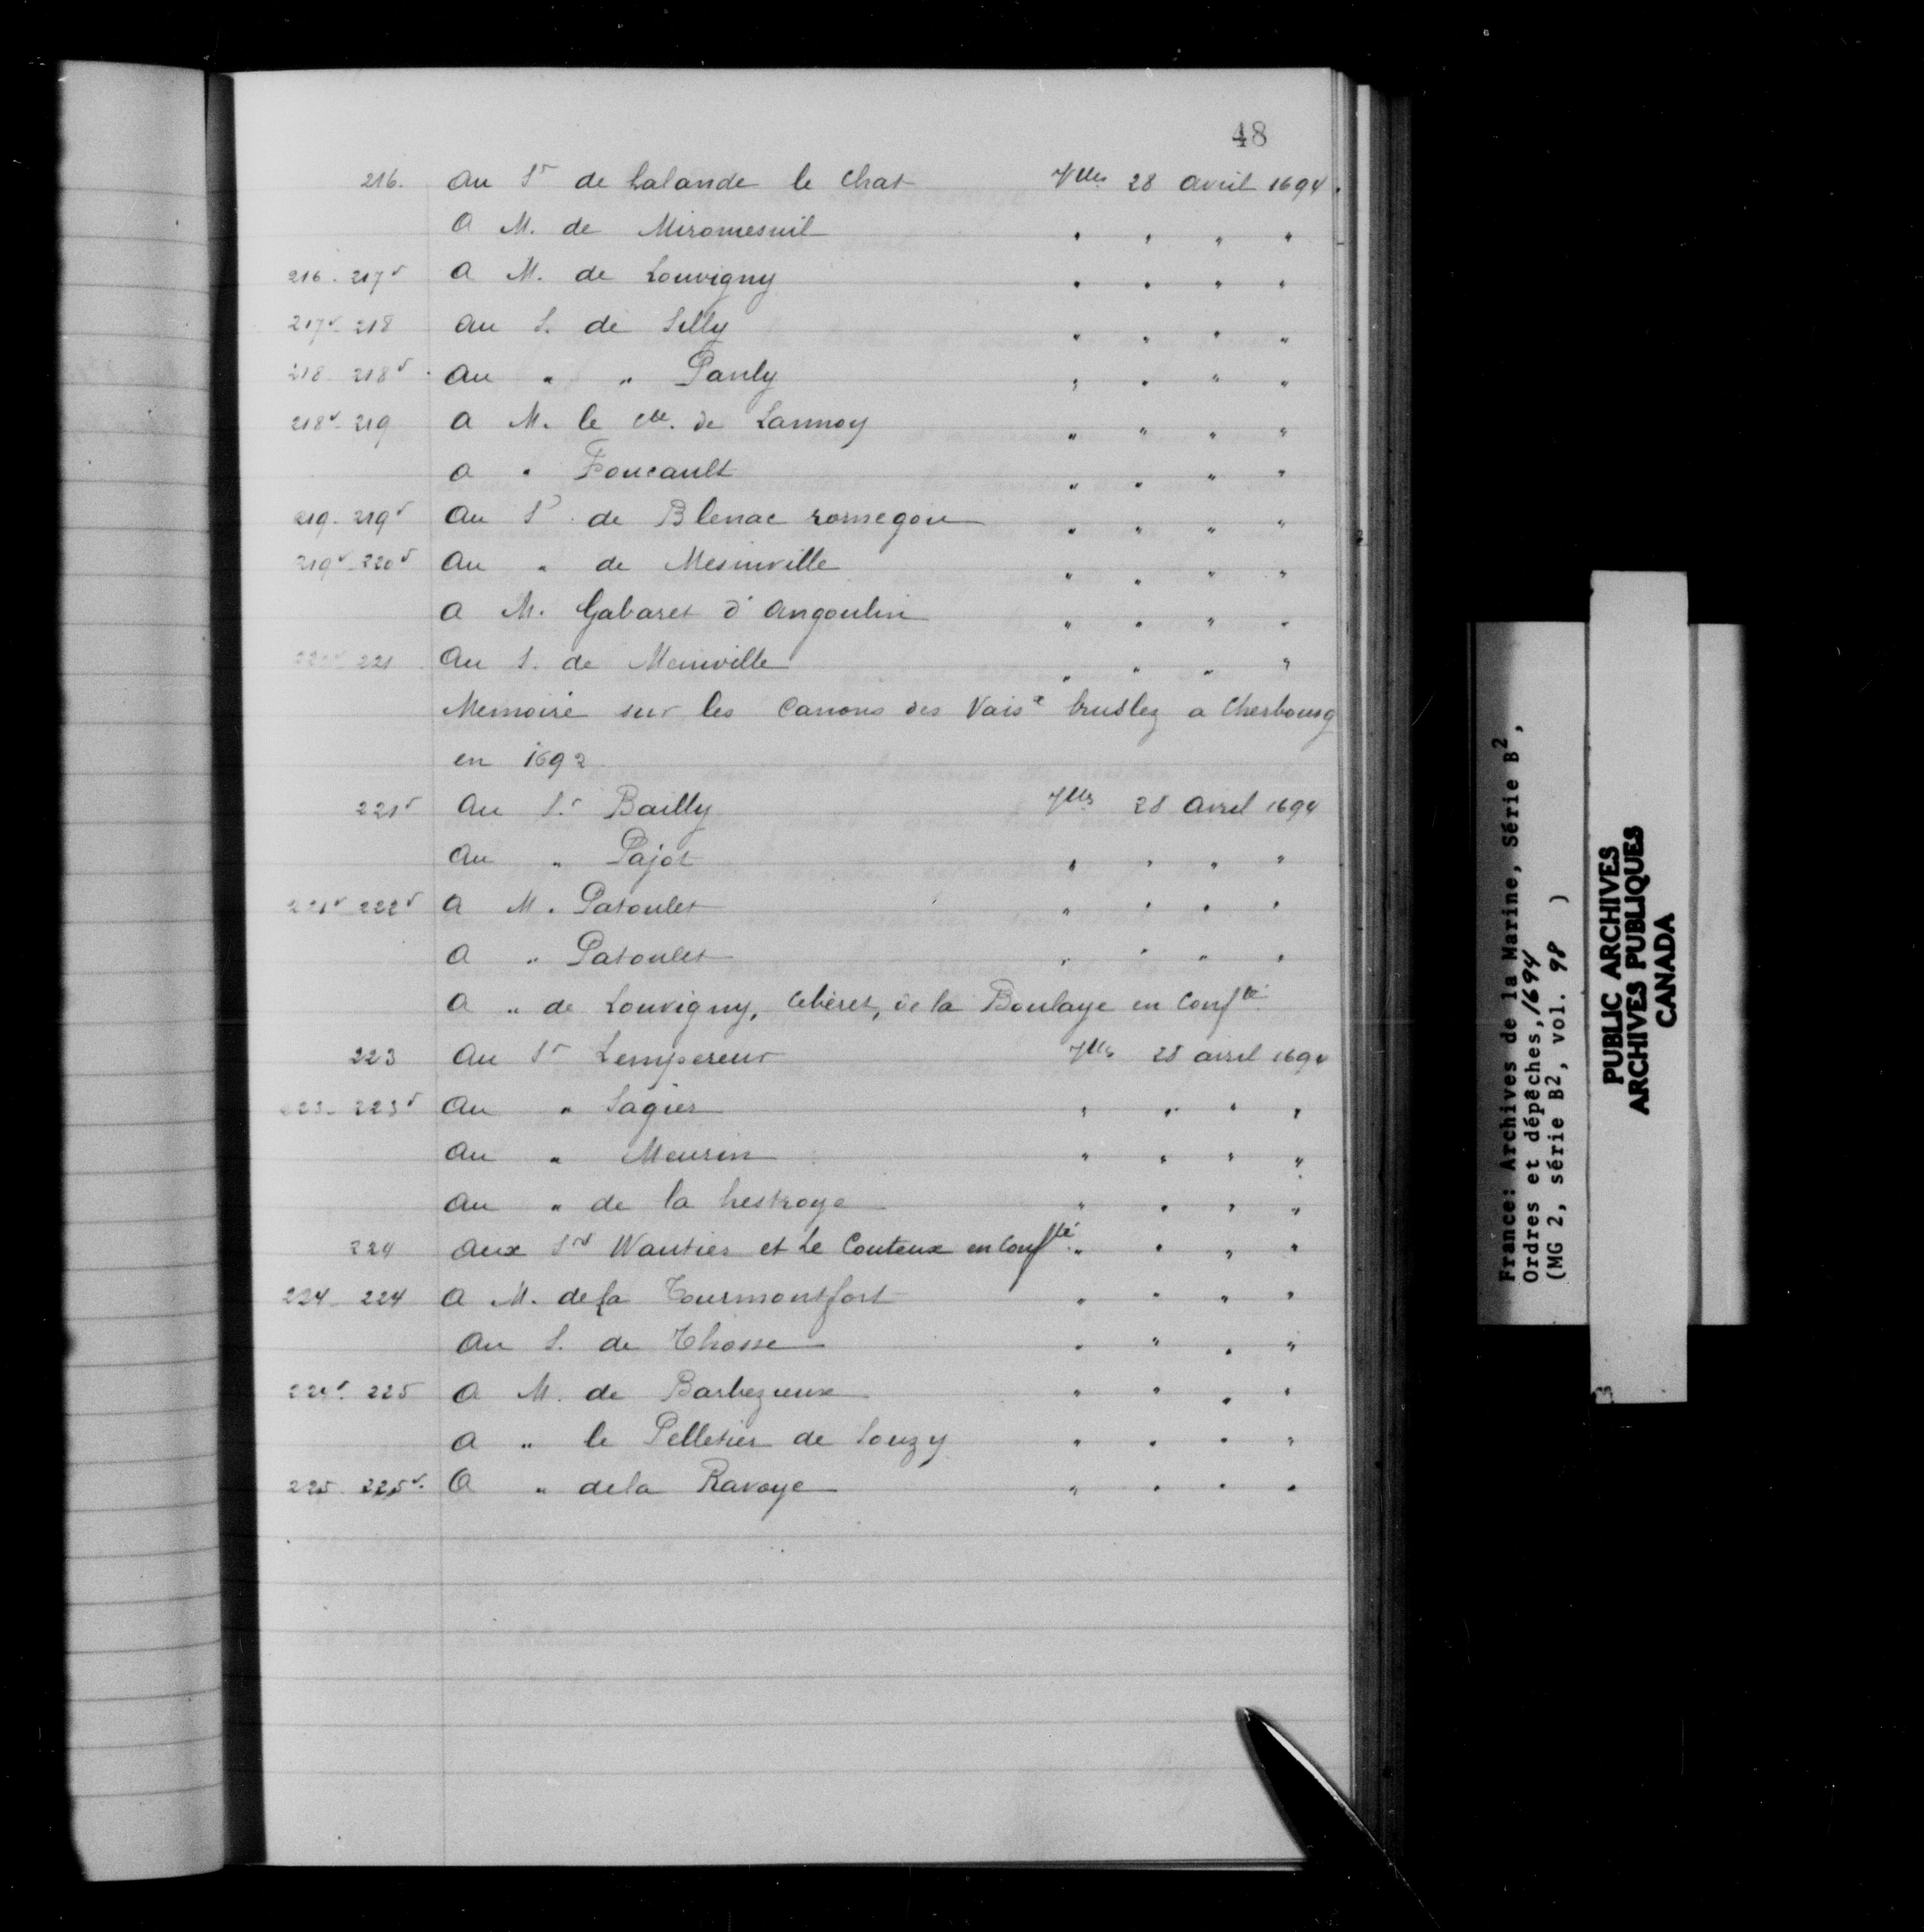 48
216. Au Sr de Lalande le Chat Vlles 28 avril 1694.
A M. de Miromesnil " " " "
216 - 217v A M. de Louvigny " " " "
217v - 218 Au S. de Silly " " " "
218 - 218v Au " " Pauly " " " "
218v - 219 A M. le Cte. de Lannoy " " " "
A " Foucault " " " "
219 - 219v Au Sr de Blenac romegou " " " "
219v - 220v Au " de Mesinville " " " "
A M. Gabaret d'Angoulin " " " "
220v 221 Au S. de Meinville " " " "
Memoire sur les Canons des Vaisx bruslez a Cherbourg
en 1692
221v Au Sr Bailly Vlles 28 avril 1694
Au " Pajot " " " "
221v 222v A M. Patoulet " " " "
A " Patoulet " " " "
A " de Louvigny, Ceberet, de la Boulaye en Confté
223 Au Sr Lempereur Vlles 28 avril 1694
223 - 223v Au " Sagies " " " "
Au " Meurin " " " "
Au " de la hestroye " " " "
224 Aux Srs Wauties et Le Couteux en Confté " " " "
224 - 224 A M. de la Tourmontfort " " " "
Au S. de Thosse " " " "
224v. 225 A M. de Barbezieux " " " "
A " le Pelletier de Souzy " " " "
225 225v. A " dela Ravoye " " " "
France: Archives de la Marine, Série B2,
Ordres et dépêches, 1694
(MG 2, série B2, vol. 98 )
PUBLIC ARCHIVES
ARCHIVES PUBLIQUES
CANADA
3